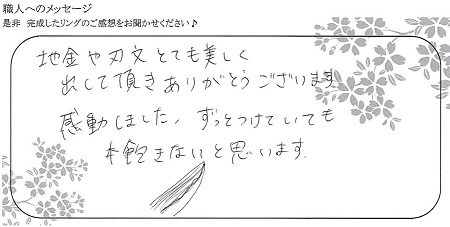 職人へのメッセージ
是非 完成したリングのご感想をお聞かせください♪
地金や刃文とても美しく
出して頂きありがとうございます
感動しました、ずっとつけていても
飽きないと思います.